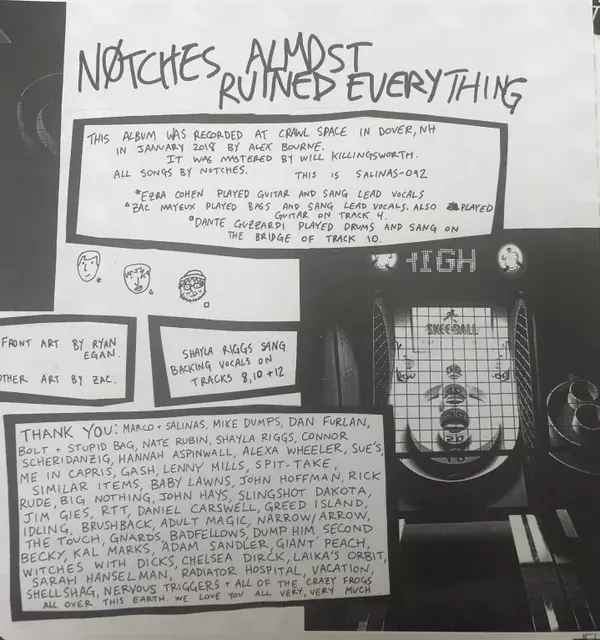 NØTCHES ALMOST
RUINED EVERYTHING
THIS ALBUM WAS RECORDED AT CRAWL SPACE IN DOVER, NH
IN JANUARY 2018 BY ALEX BOURNE.
IT WAS MASTERED BY WILL KILLINGSWORTH.
ALL SONGS BY NOTCHES. THIS IS SALINAS-092
*EZRA COHEN PLAYED GUITAR AND SANG LEAD VOCALS
△ZAC MAYEUX PLAYED BASS AND SANG LEAD VOCALS. ALSO PLAYED
GUITAR ON TRACK 4.
□DANTE GUZZARDI PLAYED DRUMS AND SANG ON
THE BRIDGE OF TRACK 10.
HIGH
SKEEBALL
FRONT ART BY RYAN
EGAN.
OTHER ART BY ZAC.
SHAYLA RIGGS SANG
BACKING VOCALS ON
TRACKS 8, 10 + 12
THANK YOU: MARCO + SALINAS, MIKE DUMPS, DAN FURLAN,
BOLT + STUPID BAG, NATE RUBIN, SHAYLA RIGGS, CONNOR
SCHERIDANZIG, HANNAH ASPINWALL, ALEXA WHEELER, SUE'S,
ME IN CAPRIS, GASH, LENNY MILLS, SPIT-TAKE,
SIMILAR ITEMS, BABY LAWNS, JOHN HOFFMAN, RICK
RUDE, BIG NOTHING, JOHN HAYS, SLINGSHOT DAKOTA,
JIM GIES, RTT, DANIEL CARSWELL, GREED ISLAND,
IDLING, BRUSHBACK, ADULT MAGIC, NARROW/ARROW,
THE TOUCH, GNARDS, BADFELLOWS, DUMP HIM SECOND
BECKY, KAL MARKS, ADAM SANDLER, GIANT PEACH,
WITCHES WITH DICKS, CHELSEA DIRCK, LAIKA'S ORBIT,
SARAH HANSELMAN, RADIATOR HOSPITAL, VACATION,
SHELLSHAG, NERVOUS TRIGGERS + ALL OF THE CRAZY FROGS
ALL OVER THIS EARTH. WE LOVE YOU ALL VERY, VERY MUCH